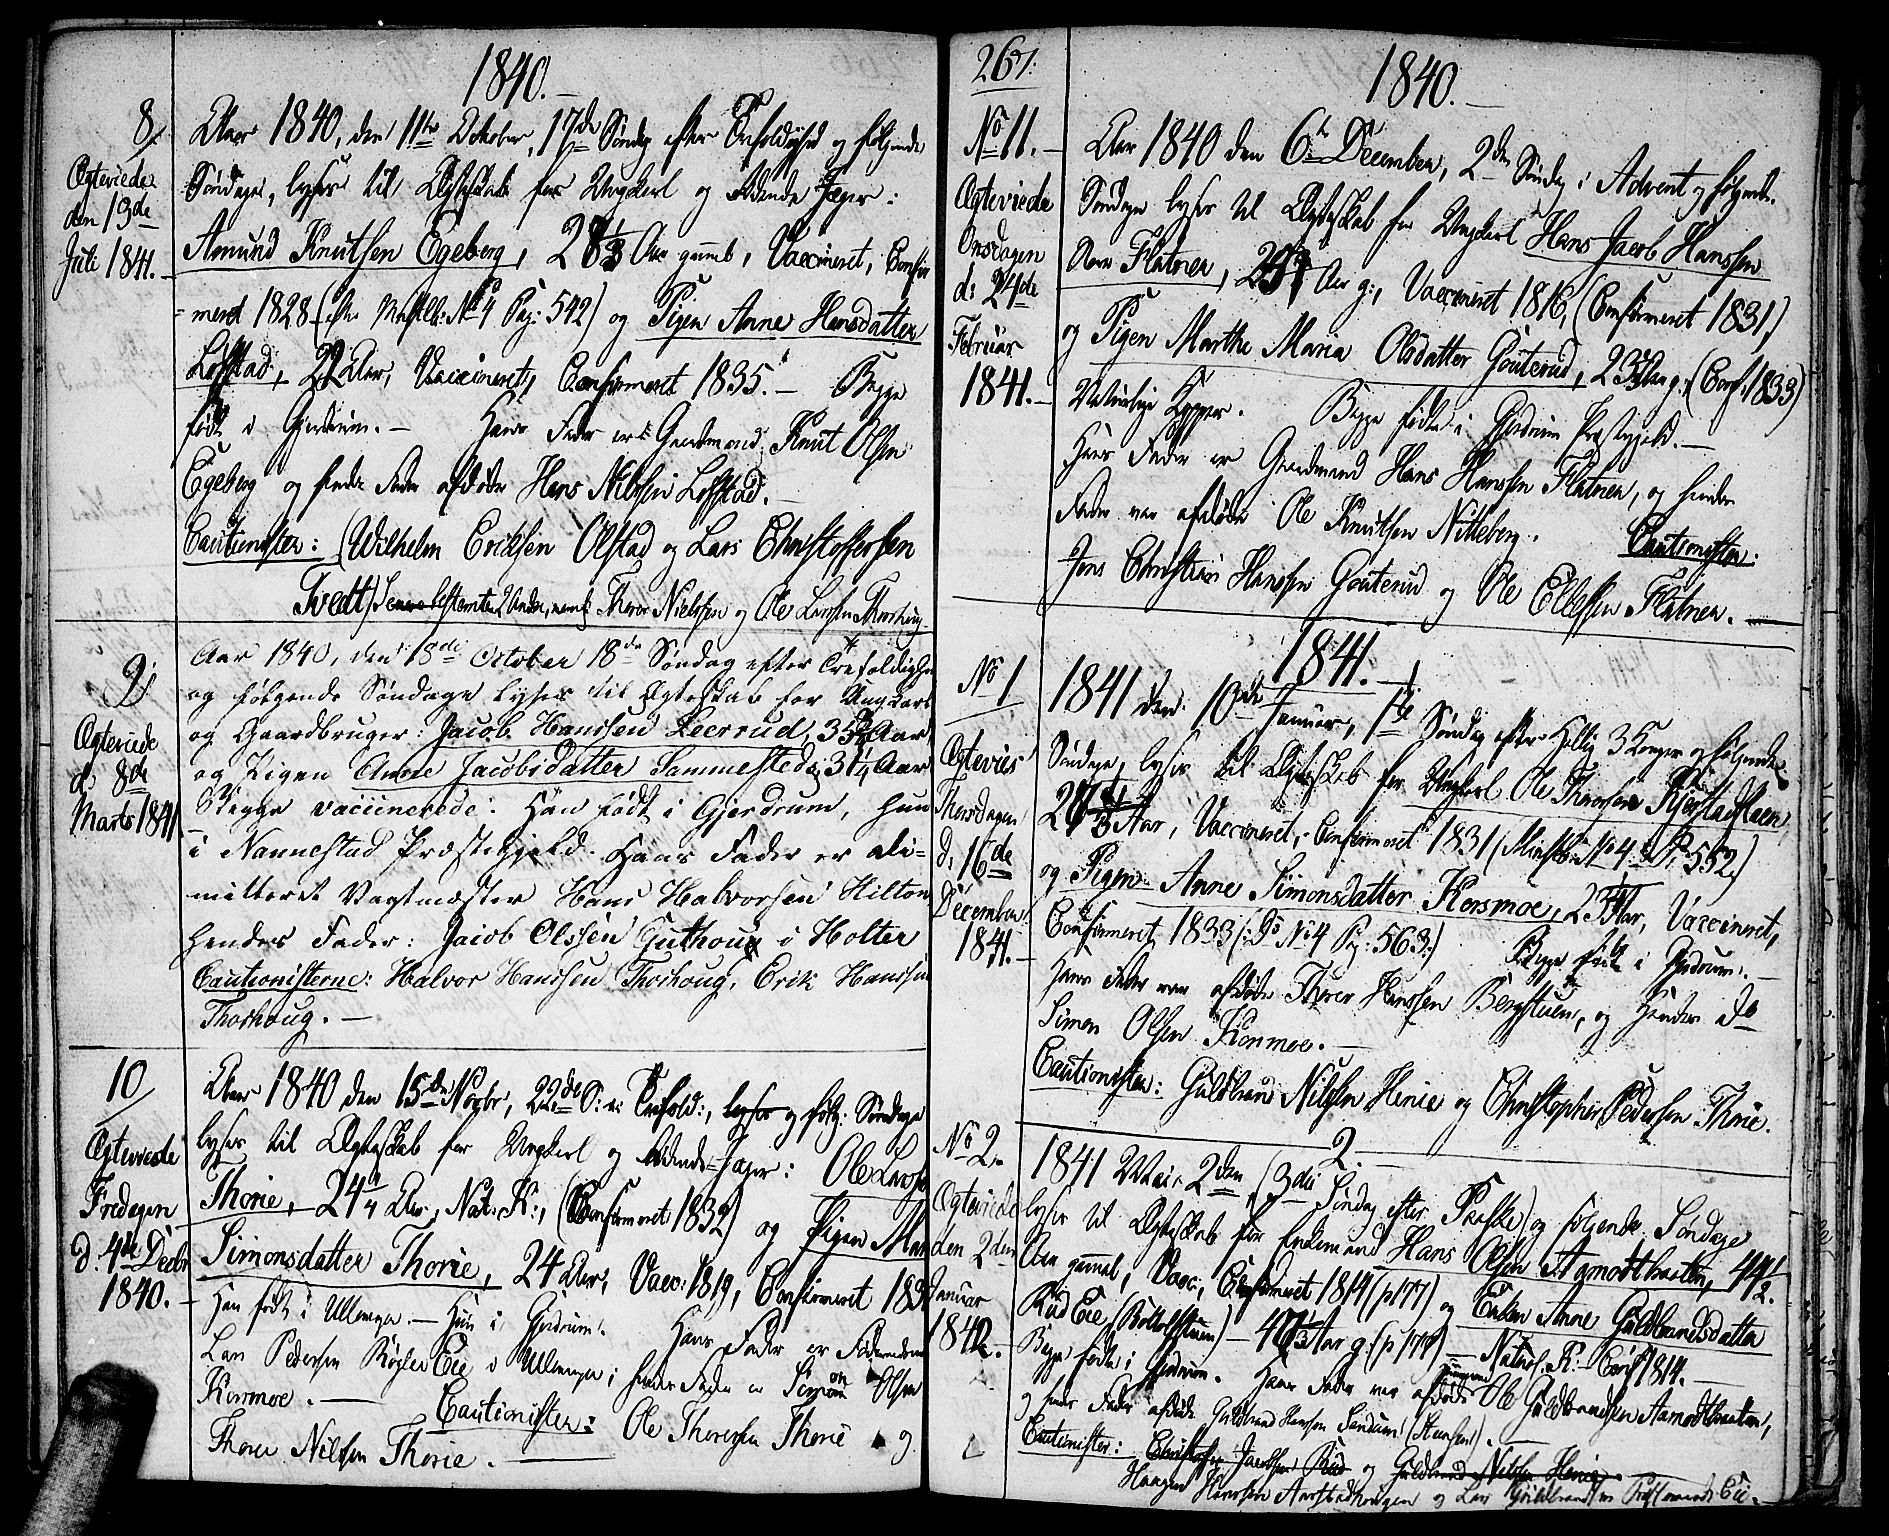 1840.
8/
Ægteviede
den 19de
Juli 1841.
Aar 1840, den 11te October, 17de Søndag efter Trefoldighed og følgende
Søndage, lyses til Ægteskab for Ungkarl og Fødende Jager:
Amund Knutsen Egeberg, 28 1/3 Aar gaml, Vaccineret, Confir
=meret 1828 (efter Mstlb: No 4 Pag: 542) og Pigen Anne Hansdatter
Løfstad, 22 Aar, Vaccineret, Confirmeret 1835. Begge
født i Gjerdrum. Hans Fader er Gaardmand Knut Olsen
Egeberg og hendes Fader afdøde Hans Nilssen Løfstad.
Cautionister: (Wilhelm Eriksen Olstad og Lars Christoffersen
Tvedt) Senere bestemte 2 Andre, neml: Thorer Nielssen og Ole Larssen
9/
Ægteviede
d: 8de
Marts 1841
Aar 1840, den 18de October 18de Søndag efter Trefoldighed
og følgende Søndage lyses til Ægteskab for Ungkarl
og Gaardbruger: Jacob Hanssen Leerrud, 35 Aar,
og Pigen Anne Jacobsdatter Sammested, 31 1/4 Aar
Begge vaccinerede: Han født i Gjerdrum, hun
i Nannestad Præstegjeld. Hans Fader er di=
mitteret Vagtmester Hans Halvorsen Hilton
hendes Fader: Jacob Olssen Guthoug i Holter
Cautionisterne: Halvor Hanssen Thorhoug, Erik Hanssen
Thorhoug.
10/
Ægteviede
Fredagen
d: 4de Decbr
1840.
Aar 1840 den 15de Novbr, 22de S: e: Trefold:, og følg: Søndage
lyses til Ægteskab for Ungkarl og Fødende-Jager: Ole Larssen
Thorie, 24 1/4 Aar, Nat: K:, (Confirmeret 1832) og Pigen
Simonsdatter Thorie, 24 Aar, Vacc: 1819, Confirmeret
Han født i Ullensager. Hun i Gjerdrum. Hans Fader er
Lars Pedersen Røgler Eie i Ullensager; hendes Fader er Simon Olsen
Kormoe. Cautionister: Ole Thoresen Thorie og
Thorer Nilsen Thorie.
267.
1840.
No 11.
Ægteviede
Onsdagen
d: 24de
Februar
1841.
Aar 1840 den 6te December, 2den Søndag i Advent og følgende
Søndage lyses til Ægteskab for Ungkarl Hans Jacob Hanssen
Flatner, Aar g:, Vaccineret 1816, (Confirmeret 1831)
og Pigen Marthe Maria Olsdatter Gouterud, 23 Aar g:, (Conf: 1833)
Naturlige Kopper. Begge fødte i Gjerdrum Præstegjeld.
Hans Fader er Gaardmand Hans Hanssen Flatner, og hendes
Fader var afdøde Ole Knutsen Nitteberg. Cautionister:
Jens Christian Hanssen Gouterud og Ole Ellefsen Flatner.
1841.
No 1
Ægteviet
Thorsdagen
d: 16de
December
1841.
1841 den 10de Januar, 1ste Søndag efter Hellig 3 Konger og følgende
Søndage, lyses til Ægteskab for Ungkarl Ole Thoresen Kjerstadteien
Aar, Vaccineret, Confirmeret 1831 (Ministb: No 4 P: 552)
og Pigen Anne Simonsdatter Kormoe, Aar, Vaccineret,
Confirmeret 1833 (: Do No 4 Pag: 563:) Begge født i Gjerdrum.
Hans Fader var afdøde Thorer Hanssen Bergstuen, og Hendes do
Simon Olsen Kormoe.
Cautionister: Guldbrand Nilssen Henie og Christopher Pedersen Thorie.
2.
No 2.
Ægteviede
den 2den
Januar
1842.
1841 Mai 2den, (3die Søndag efter Paaske) og følgende Søndage
lyses til Ægteskab for Enkemand Hans Olsen Aamodtbraaten, 44 1/2
Aar gammel, Vacc:, Confirmeret 1814 (p 177) og Enken Anne Guldbrandsdatter
Rud Eie, 47 1/3 Aar g: (p 177) Naturl: K: Conf: 1814.
Begge fødte i Gjerdrum. Hans Fader var afdøde Ole Guldbrandsen Aamodtbraaten,
og hendes Fader afdøde Guldbrand Hansen
Cautionister: Christopher Jacobsen Rud og Guldbrand Nilssen Henie
Haagen Hanssen Aarstadhougen og Lars Guldbrandsen Eie.